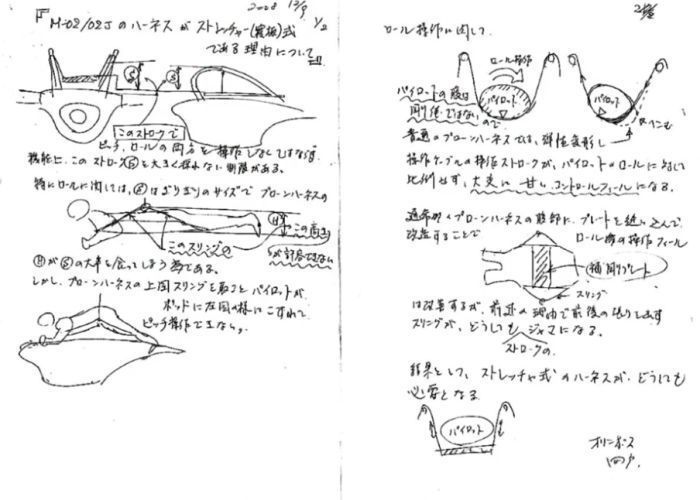 2008 12/9 1/2
『M-02/02Jのハーネスがストレッチャー(寝板)式
である理由について』
Ⓢ Ⓢ
このストロークで
ピッチ、ロールの両方を操作しなくてはならず
機能上、このストロークⓈを大きく採れない制限がある。
特にロールに関しては、Ⓢはぎりぎりのサイズでプローンハーネスの
Ⓗ この高さ
このスリングの
が許容できない
ⒽがⓈの大半を食ってしまう為である。
しかし、プローンハーネスの上図スリングを取ると、パイロットが、
ポッドに左図の様にこすれて
ピッチ操作できない。
2/2
ロール操作に関して、
ロール操作
パイロット
パイロット
パイロットの腹は
剛体ではない
ので
へこむ
普通のプローンハーネスでは、弾性変形し
操作ケーブルの操作ストロークが、パイロットのロールに対して
比例せず、大変に甘いコントロールフィールになる。
通常のプローンハーネスの腹部に、プレートを縫い込んで、
改善することで
ロール時の操作フィール
補剛プレート
スリング
は改善するが、前述の理由で前後の張り出す
スリングが、どうしてもジャマになる。
ストロークの
結果として、ストレッチャ式のハーネスが、どうしても
必要となる
パイロット
オリンポス
四戸